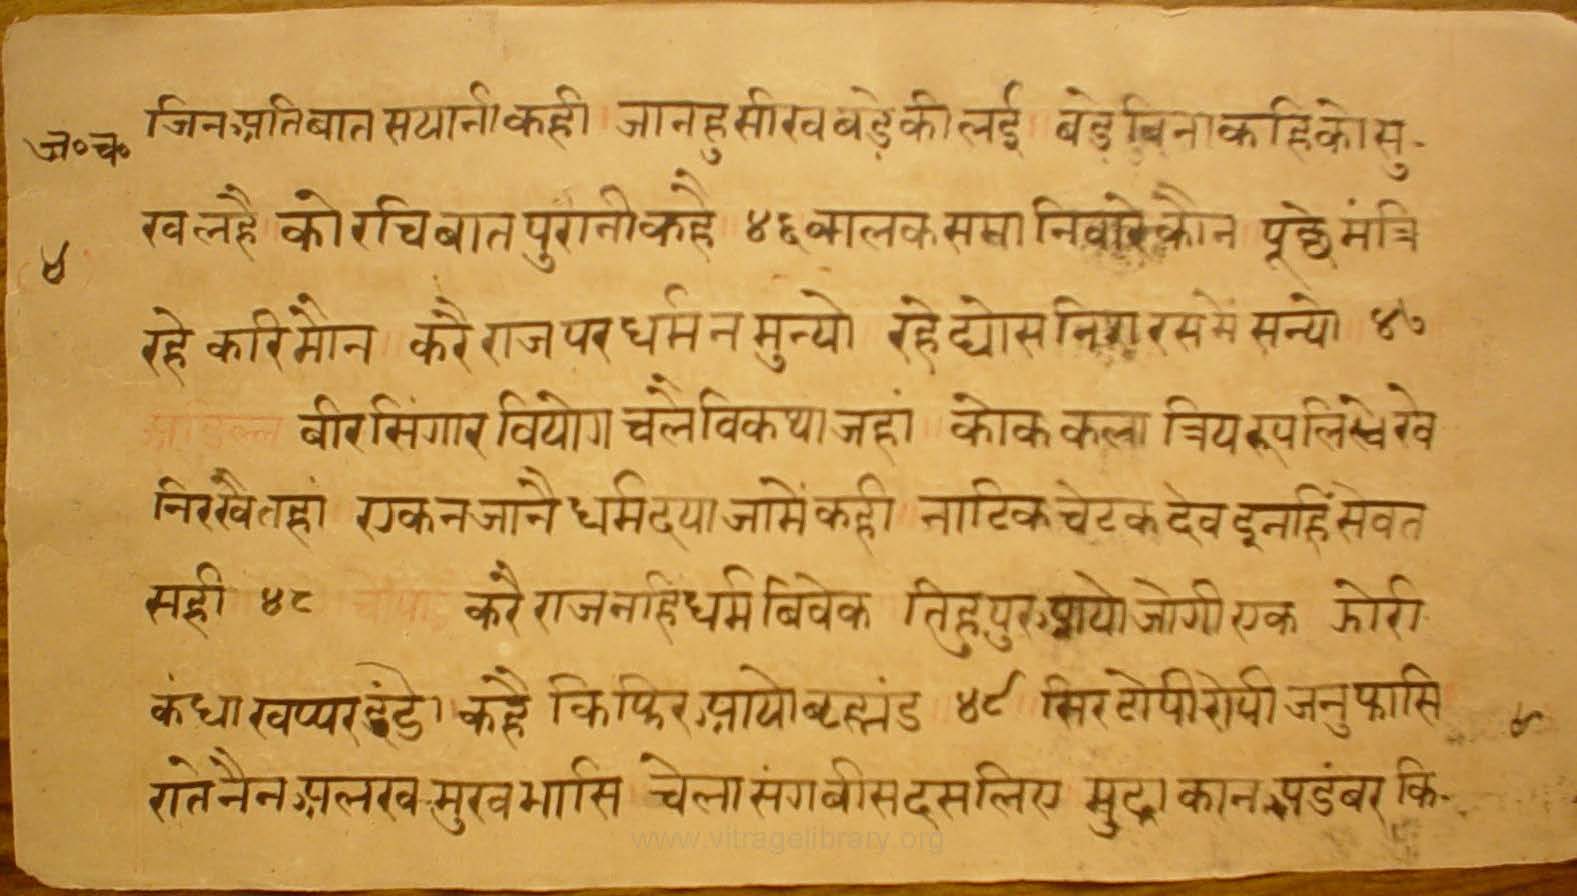 जिनप्रतिबातसयानीकही ॥ जानहुसीखबडेकीलई ॥ बडेबिनाकहिकोसु-
ज॰च॰
खलहै कोरचिबातपुरानीकहै ४६ बालकसभानिवारेकौन पूछेमंत्रि
४
रहेकरिमौन करैराजपरधर्मनमुन्यो रहेद्योसनिशरसमेंसन्यो ४७
अडिल्ल बीरसिंगारवियोगचलैविकथाजहां ॥ कोककलात्रियरूपलिखेखे
निरखैतहां एकनजानैधर्मदयाजामेंकही नाटिकचेटकदेवइनहिंसेवत
सही ४८ चौपाई करैराजनहिधर्मबिवेक तिहुपुरआयोजोगीएक झोरी
कंधाखप्परडंडे। कहै किफिरआयोब्रह्मंड ४९ सिरटोपीरोपीजनुफासि
४
रातेनैनअलखमुखभासि चेलासंगबीसदसलिए मुद्राकानअडंबरकि-
www.vitragelibrary.org